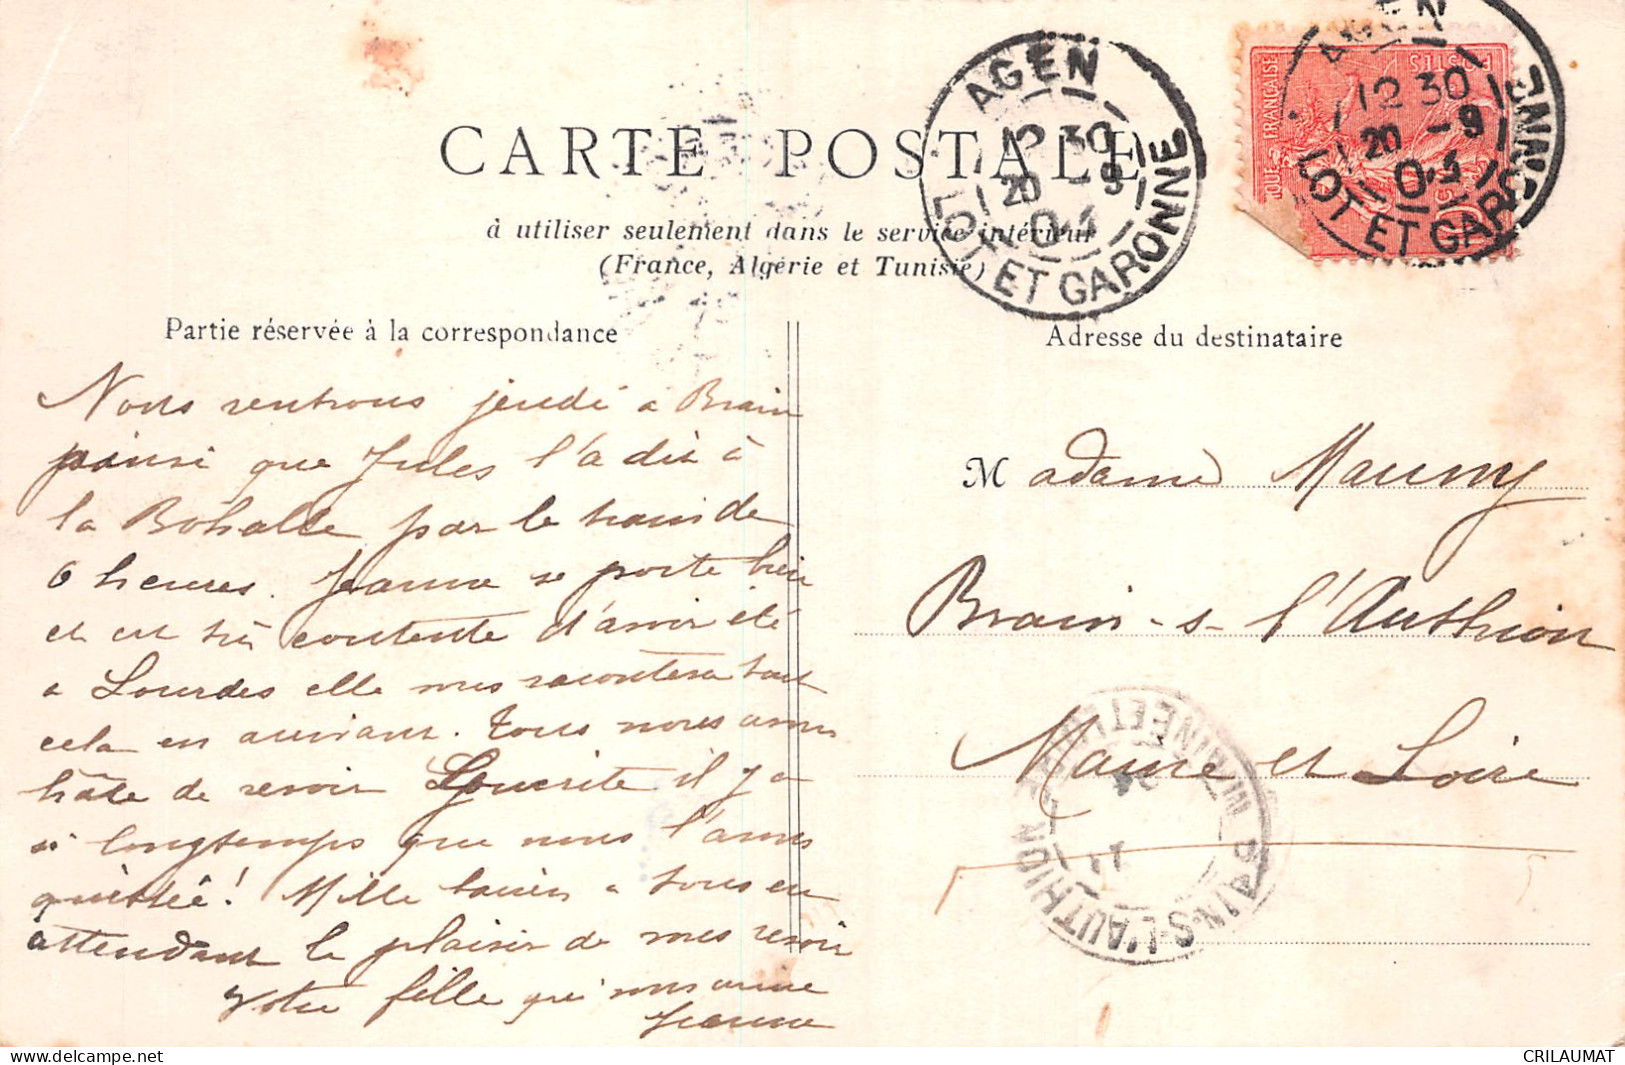 AGEN
12 30
20 -9
04
LOT ET GARONNE
AGEN
12 30
20 -9
LOT ET GARONNE
POSTES
FRANÇAISE
CARTE POSTALE
à utiliser seulement dans le service intérieur
(France, Algérie et Tunisie)
Partie réservée à la correspondance
Nous rentrons jeudi a Brain
ainsi que Jules l'a dit à
la Bohalle par le train de
6 heures. Jeanne se porte bien
et est très contente d'avoir été
a Lourdes elle vous racontera tout
cela en arrivant. Tous nous avons
hâte de revoir il y a
si longtemps que nous l'avons
quittée! Mille baisers a tous en
attendant le plaisir de vous revoir
Votre fille qui vous aime
Jeanne
Adresse du destinataire
Madame Mauny
Brain-s-l'Authion
Maine et Loire
BRAIN-S-L'AUTHION
MAINE ET LOIRE
CRILAUMAT